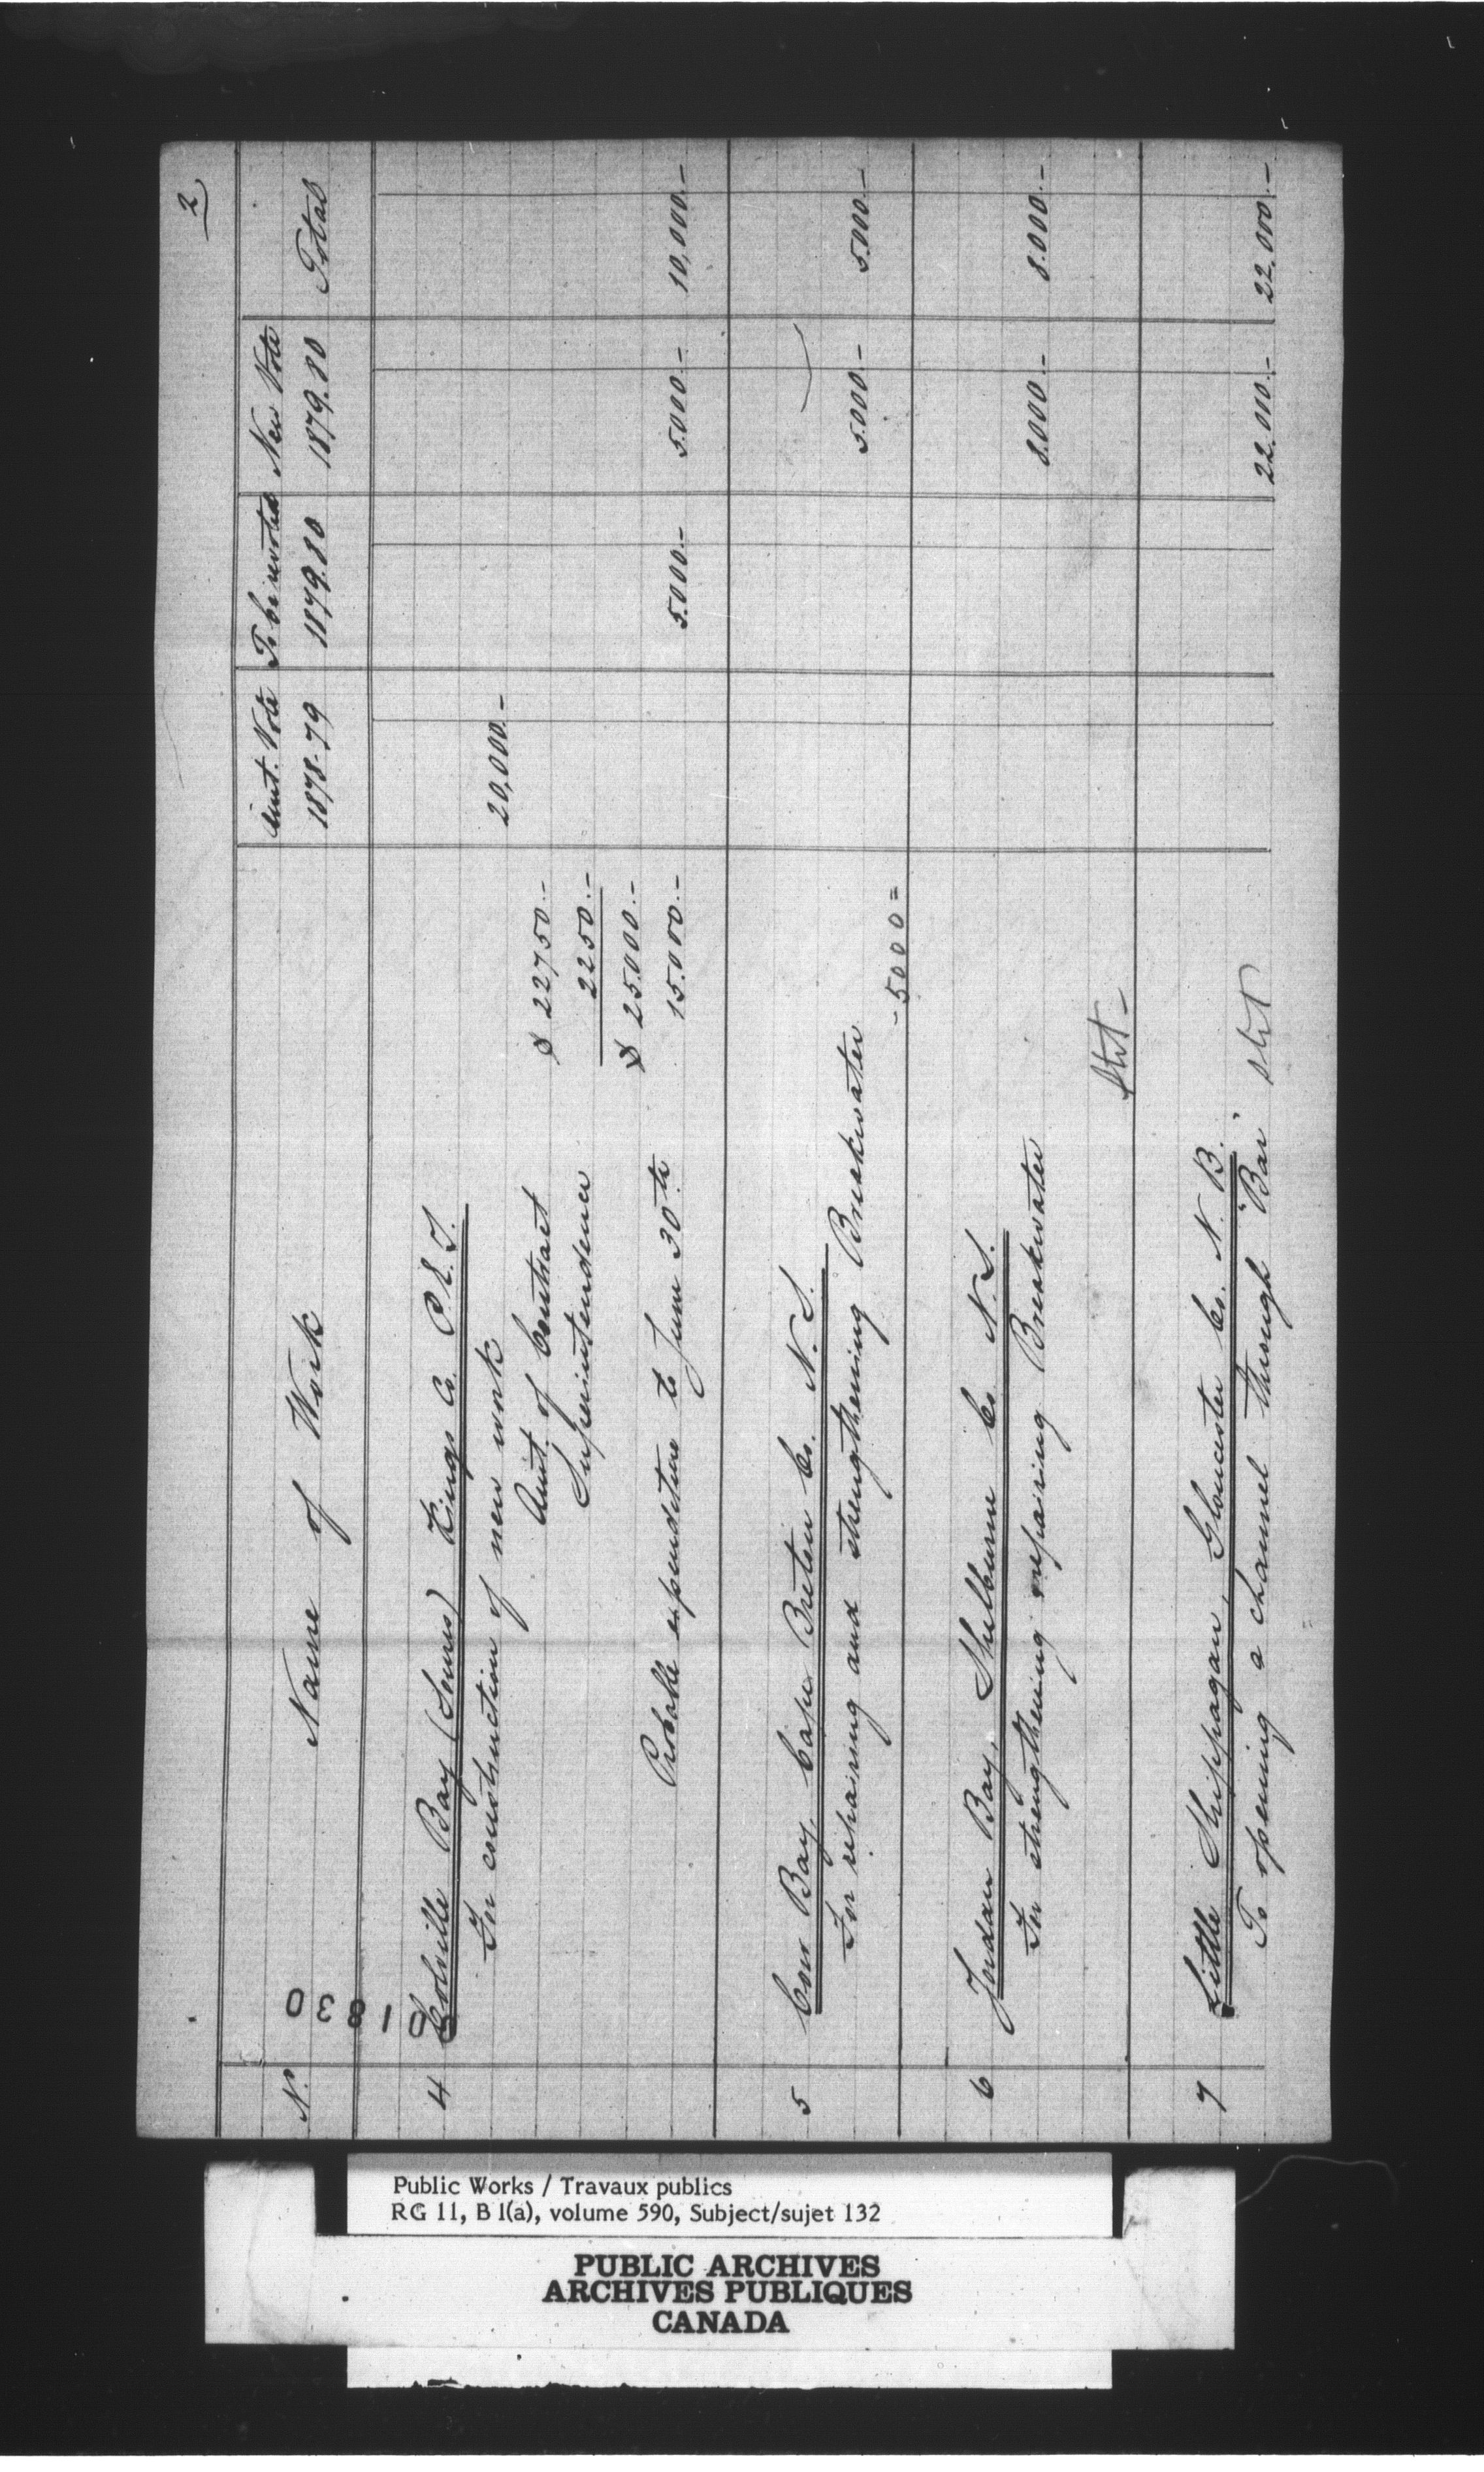 2
N. Name of Work Amt. Vote To be revoted New Vote Total
1878-79 1879.80 1879.80
001830
4 Colville Bay (Souris) Kings Co. P.E.I.
For construction of new work 20,000.-
Amt. of Contract $ 22750.-
Superintendence 2250.-
$ 25000.-
Probable expenditure to June 30th 15.000.- 5.000.- 5.000.- 10,000.-
5 Cow Bay, Cape Breton Co. N.S.
For repairing and strengthening Breakwater 5.000.- 5.000.-
- 5000 =
6 Jordan Bay, Shelburne Co. N.S.
For strengthening repairing Breakwater 8.000.- 8.000.-
7 Little Shippagan, Gloucester Co. N.B.
To opening a channel through "Bar" 22.000.- 22.000.-
Public Works / Travaux publics
RG 11, B 1(a), volume 590, Subject/sujet 132
PUBLIC ARCHIVES
ARCHIVES PUBLIQUES
CANADA